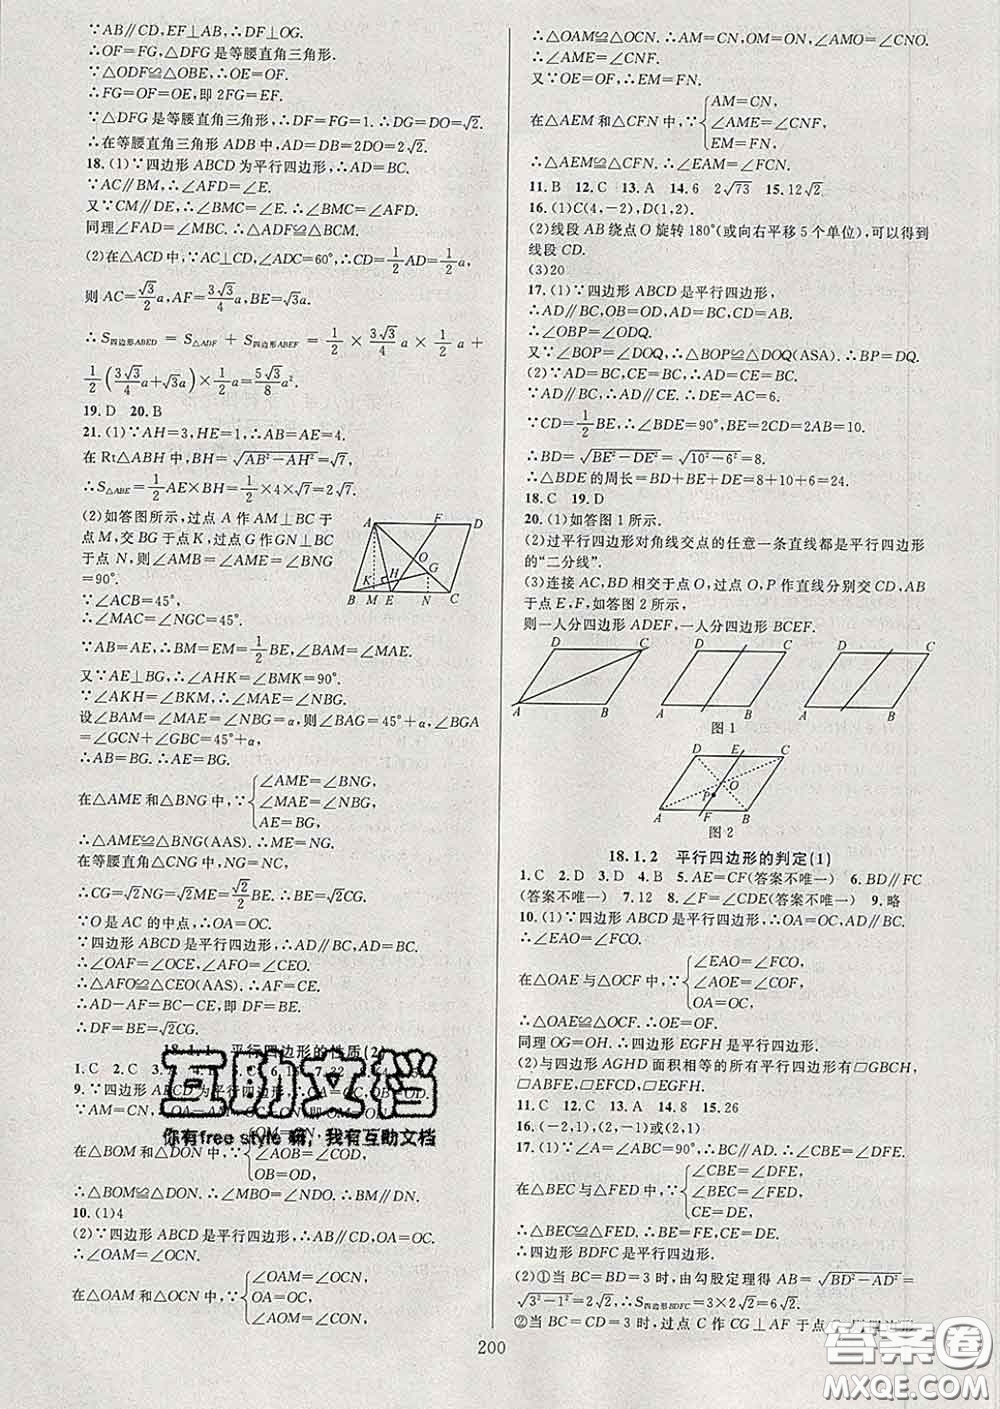 ∵AB∥CD,EF⊥AB,∴DF⊥OG.
∴OF=FG,△DFG是等腰直角三角形.
∵△ODF≌△OBE,∴OE=OF.
∴FG=OF=OE,即2FG=EF.
∵△DFG是等腰直角三角形,∴DF=FG=1.∴DG=DO=√2.
∴在等腰直角三角形ADB中,AD=DB=2DO=2√2.
18.(1)∵四边形ABCD为平行四边形,∴AD=BC.
∵AC∥BM,∴∠AFD=∠E.
又∵CM∥DE,∴∠BMC=∠E.∴∠AFD=∠BMC.
同理∠FAD=∠MBC.∴△ADF≌△BCM.
(2)在△ACD中,∵AC⊥CD,∠ADC=60°,∴CD=1/2AD=1/2a,
则AC=√3/2a,AF=3√3/4a,BE=√3a.
∴S四边形ABED=S△ADF+S四边形ABEF=1/2×3√3/4a×1/2a+
1/2(3√3/4a+√3a)×1/2a=5√3/8a².
19.D 20.B
21.(1)∵AH=3,HE=1,∴AB=AE=4.
在Rt△ABH中,BH=√(AB²-AH²)=√7,
∴S△ABE=1/2AE×BH=1/2×4×√7=2√7.
(2)如答图所示,过点A作AM⊥BC于
点M,交BG于点K,过点G作GN⊥BC
于点N,则∠AMB=∠AME=∠BNG
=90°.
∵∠ACB=45°,
∴∠MAC=∠NGC=45°.
∵AB=AE,∴BM=EM=1/2BE,∠BAM=∠MAE.
又∵AE⊥BG,∴∠AHK=∠BMK=90°.
∵∠AKH=∠BKM,∴∠MAE=∠NBG.
设∠BAM=∠MAE=∠NBG=α,则∠BAG=45°+α,∠BGA
=∠GCN+∠GBC=45°+α,
∴AB=BG.∴AE=BG.
在△AME和△BNG中,∵{∠AME=∠BNG,
∠MAE=∠NBG,
AE=BG,
∴△AME≌△BNG(AAS).∴ME=NG.
在等腰直角△CNG中,NG=NC,
∴CG=√2NG=√2ME=√2/2BE.∴BE=√2CG.
∵O是AC的中点,∴OA=OC.
∵四边形ABCD是平行四边形,∴AD∥BC,AD=BC.
∴∠OAF=∠OCE,∠AFO=∠CEO.
∴△AFO≌△CEO(AAS).∴AF=CE.
∴AD-AF=BC-CE,即DF=BE.
∴DF=BE=√2CG.
18.1.1 平行四边形的性质(2)
1.C 2.C
9.∵四边形ABCD为平行四边形,
∵AM=CN,
在△BOM和△DON中,∵
∠AOB=∠COD,
OB=OD,
∴△BOM≌△DON.∴∠MBO=∠NDO.∴BM∥DN.
10.(1)4
(2)∵四边形ABCD是平行四边形,∴AB∥CD,OA=OC.
∴∠OAM=∠OCN.
在△OAM和△OCN中,∵{∠OAM=∠OCN,
OA=OC,
∠AOM=∠CON,
A F D O G H K B M E N C
∴△OAM≌△OCN.∴AM=CN,OM=ON,∠AMO=∠CNO.
∴∠AME=∠CNF.
又∵OE=OF,∴EM=FN.
在△AEM和△CFN中,∵{AM=CN,
∠AME=∠CNF,
EM=FN,
∴△AEM≌△CFN.∴∠EAM=∠FCN.
11.B 12.C 13.A 14.6 2√73 15.12√2
16.(1)C(4,-2),D(1,2).
(2)线段AB绕点O旋转180°(或向右平移5个单位),可以得到
线段CD.
(3)20
17.(1)∵四边形ABCD是平行四边形,
∴AD∥BC,OB=OD,OA=OC,AD=BC.
∴∠OBP=∠ODQ.
又∵∠BOP=∠DOQ,∴△BOP≌△DOQ(ASA).∴BP=DQ.
(2)∵AD=BC,CE=BC,∴AD=CE.
∵AD∥BC,∴AD∥CE.∴DE=AC=6.
∵CD=1/2BE,∴∠BDE=90°,BE=2CD=2AB=10.
∴BD=√(BE²-DE²)=√(10²-6²)=8.
∴△BDE的周长=BD+BE+DE=8+10+6=24.
18.C 19.D
20.(1)如答图1所示.
(2)过平行四边形对角线交点的任意一条直线都是平行四边形
的“二分线”.
(3)连接AC,BD相交于点O,过点O,P作直线分别交CD,AB
于点E,F,如答图2所示,
则一人分四边形ADEF,一人分四边形BCEF.
D C A B D C A B D C A B
图1
D E C O P A F B
图2
18.1.2 平行四边形的判定(1)
1.C 2.D 3.D 4.B 5.AE=CF(答案不唯一) 6.BD∥FC
(答案不唯一) 7.12 8.∠F=∠CDE(答案不唯一) 9.略
10.(1)∵四边形ABCD是平行四边形,∴OA=OC,AD∥BC.
∴∠EAO=∠FCO.
在△OAE与△OCF中,∵{∠EAO=∠FCO,
∠AOE=∠COF,
OA=OC,
∴△OAE≌△OCF.∴OE=OF.
同理OG=OH.∴四边形EGFH是平行四边形.
(2)与四边形AGHD面积相等的所有平行四边形有▱GBCH,
▱ABFE,▱EFCD,▱EGFH.
11.C 12.C 13.A 14.8 15.26
16.(-2,1),(2,-1)或(2,1)
17.(1)∵∠A=∠ABC=90°,∴BC∥AD.∴∠CBE=∠DFE.
在△BEC与△FED中,∵{∠CBE=∠DFE,
∠BEC=∠FED,
CE=DE,
∴△BEC≌△FED.∴BE=FE.又∵CE=DE,
∴四边形BDFC是平行四边形.
(2)①当BC=BD=3时,由勾股定理得AB=√(BD²-AD²)=
√(3²-1²)=2√2,∴S四边形BDFC=3×2√2=6√2.
②当BC=CD=3时,过点C作CG⊥AF于点
200
互助文档
你有free style 嘛，我有互助文档
答案圈
MXQE.COM